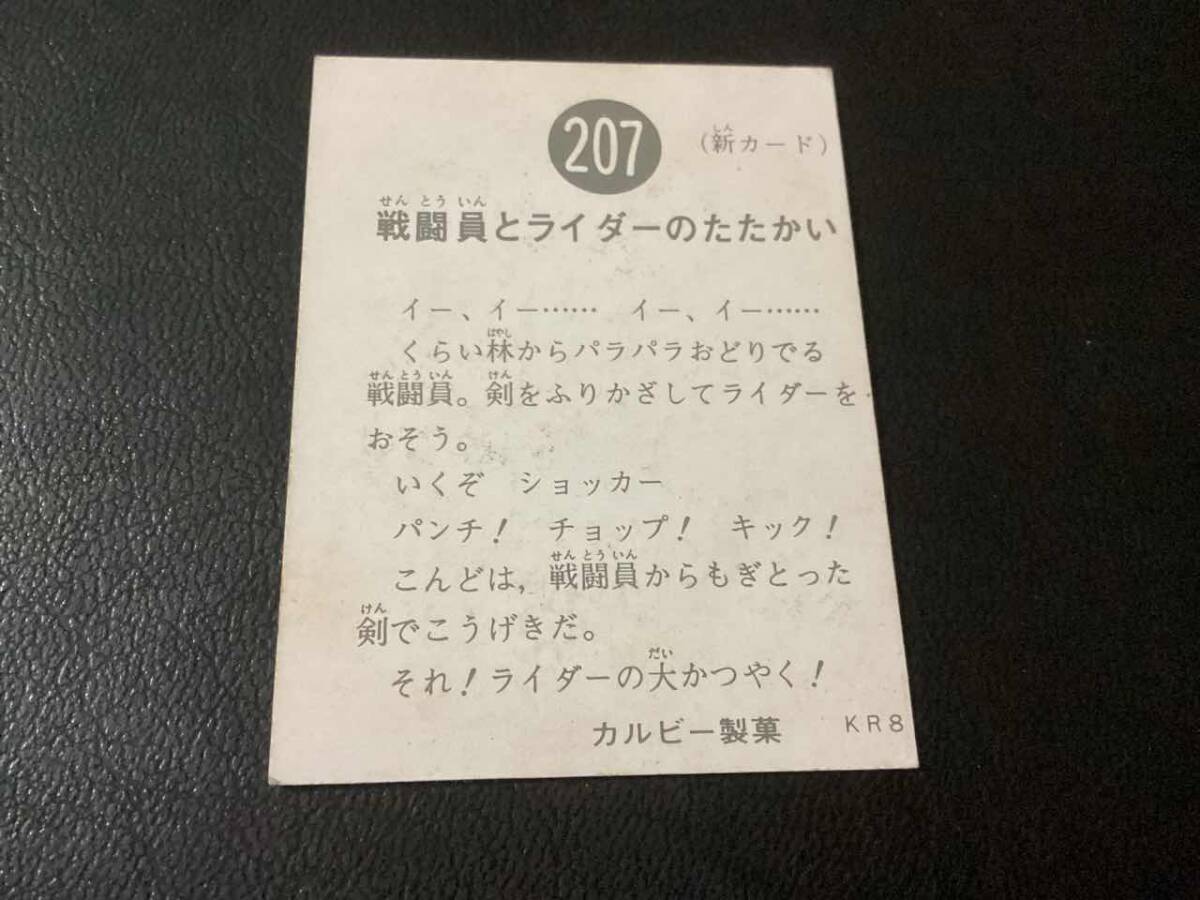 207
(新カード)
しん
せんとういん
戦闘員とライダーのたたかい
イー、イー…… イー、イー……
ばやし
くらい林からパラパラおどりでる
せんとういん けん
戦闘員。剣をふりかざしてライダーを
おそう。
いくぞ ショッカー
パンチ! チョップ! キック!
せんとういん
こんどは,戦闘員からもぎとった
けん
剣でこうげきだ。
だい
それ!ライダーの大かつやく!
カルビー製菓 KR8